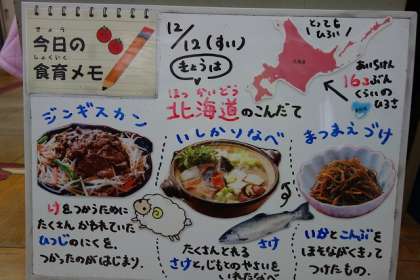 きょう
今日の
しょくいく
食育メモ
12/12(すい)
きょうは
ほっかいどう
北海道のこんだて
とっても
ひろい
北海道
あいちけん
16こぶん
くらいの
ひろさ
ジンギスカン
けをつかうために
たくさんかわれていた
ひつじのにくを、
つかったのがはじまり。
いしかりなべ
さけ
たくさんとれる
さけと、じもとのやさいを
いれたなべ
まつまえづけ
いかとこんぶを
ほそながくきって
つけたもの。